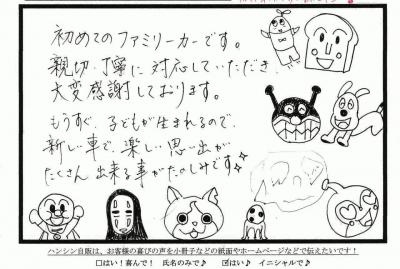 初めてのファミリーカーです。
親切・丁寧に対応していただき、
大変感謝しております。
もうすぐ、子どもが生まれるので、
新しい車で、楽しい思い出が
たくさん出来る事がたのしみです
ハンシン自販は、お客様の喜びの声を小冊子などの紙面やホームページなどで伝えたいです！
□はい！喜んで！ 氏名のみで♪ ☑はい♪ イニシャルで♪